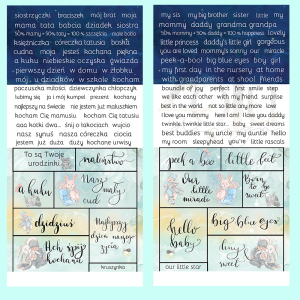 siostrzyczki braciszek mój brat moja
mama tata dziadek babcia siostra
50% mamy + 50% taty = 100 % szczęścia małe bobo
księżniczka córeczka tatusia boska
cudna moja jesteś kochana piękna
a kuku niebieskie oczęta gwiazda
pierwszy dzień w domu w żłobku
mój u dziadków w szkole kocham
paczuszka miłości dziewczynka chłopczyk
lubimy się ja i mój kumpel prezent kochany
najlepszy na świecie nie jestem już maluszkiem
kocham Cię mamusiu kocham Cię tatusiu
oaa kotki dwa... śnij o łakociach wujcio
nasz synuś nasza córeczka ciocia
jestem już duża duży kochany urwis
To są Twoje
urodzinki
maleństwo
a kuku
Nasz
mały
cud
dzidziuś
Najlepszy
dzień naszego
życia
Ach śpij
kochanie
kruszynka
my sis my big brother sister little my
mommy daddy grandma grandpa
50% mommy + 50% daddy = 100 % happiness lovely
little princess daddy's little girl gorgeous
you are loved mommy's sonny our miracle
peek-a-boo! big blue eyes boy girl
my first day in the nursery at home
with grandparents at shool friends
boundle of joy perfect first smile step
we like each other with my friend surprise
best in the world not so little any more love
I love you mommy here I am! I love you daddy
twinkle, twinkle little star... baby sweet dreams
best buddies my uncle my auntie hello
my room sleepyhead you're little rascals
peek a boo
little feet
Our
little
miracle
Born to
be
sweet
hello
baby
big blue eyes
tiny &
sweet
our little star